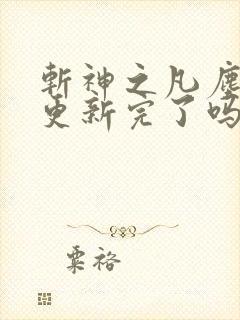 斬神之凡塵
更新完了吗
粟裕